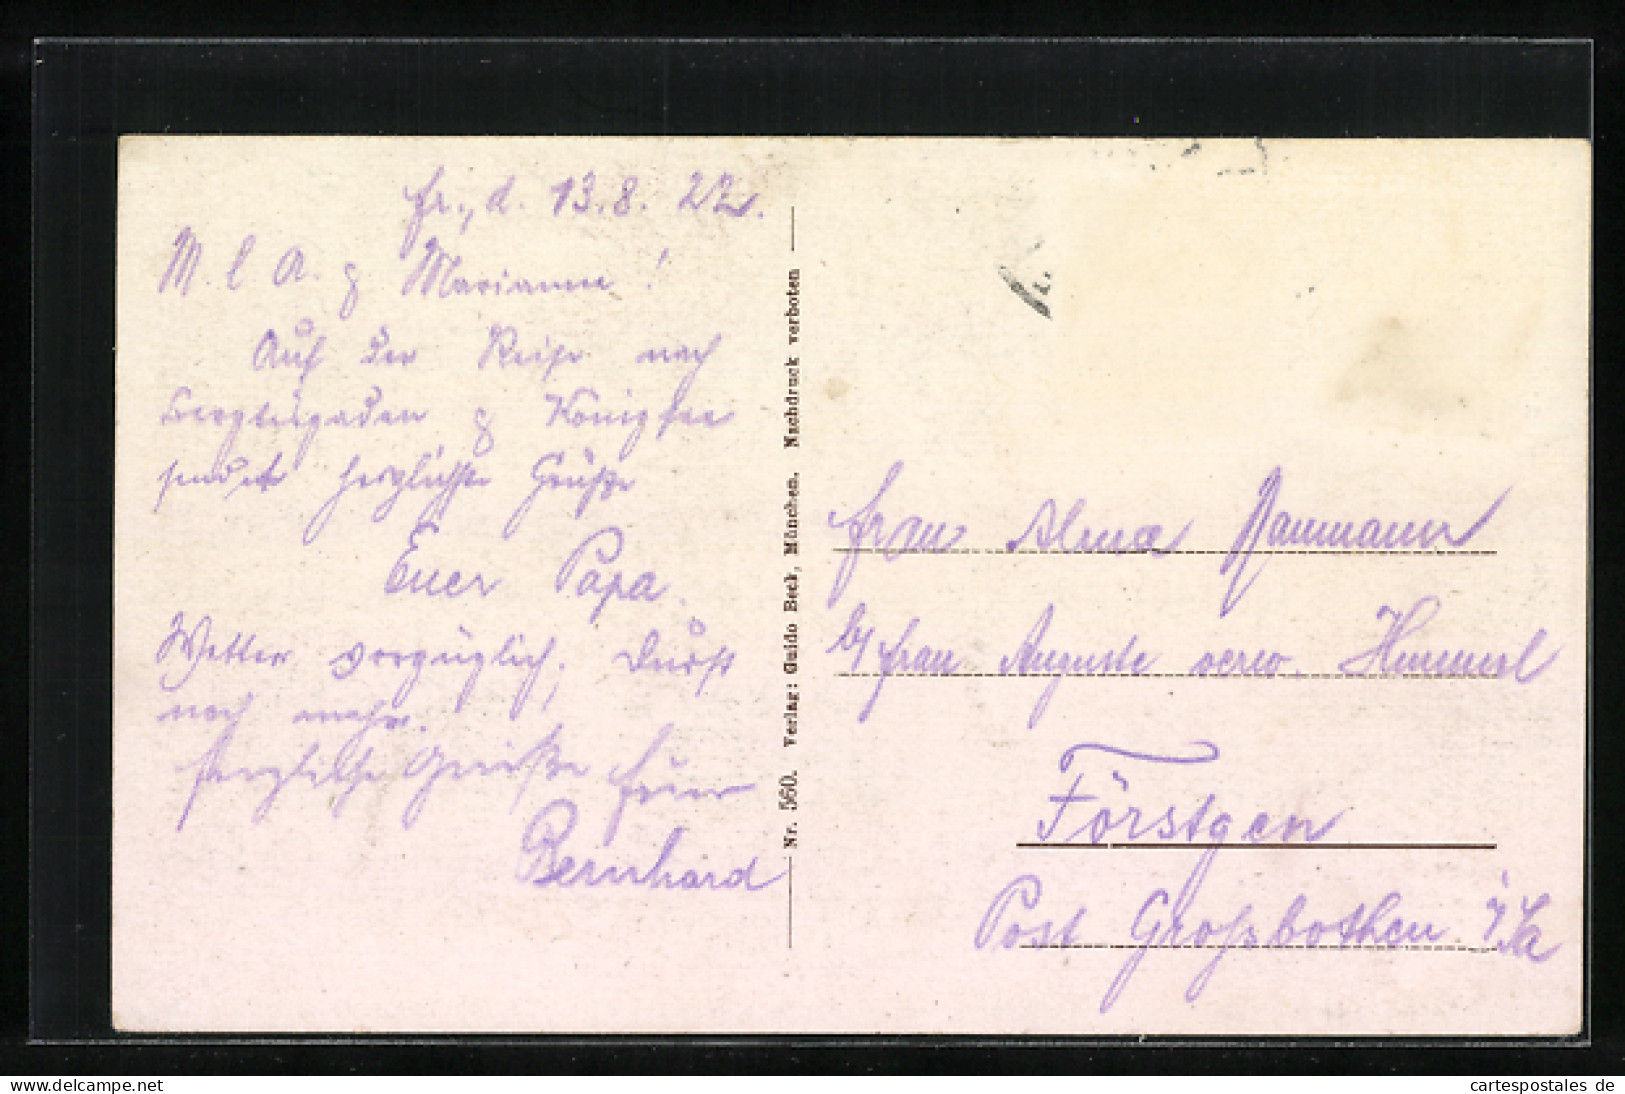 Fr., d. 13.8.22.
M. l A. & Marianne!
Auf der Reise nach
Berchtesgaden & Königsee
sendet herzlichste Grüße
Euer Papa.
Wetter vorzüglich; Durst
noch mehr.
Herzliche Grüße Euer
Bernhard
Nr. 560. Verlag: Guido Beck, München. Nachdruck verboten
Frau Alma Naumann
b/ Frau Auguste verw. Hummel
Förstgen
Post Großbothen i/Sa
Delcampe.net
cartespostales_de